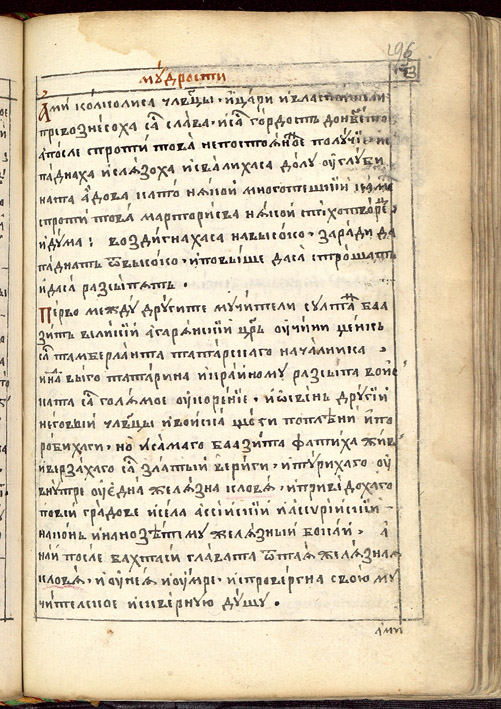 296
мꙋ́дрости
73
Ами ко́лколиса чл҃вцы, и҆цари и҆властители
привознесоха са̑ слава, и҆са̑ гордость
а҆после спроти това непостоѧнное получїе, и҆с
паднаха и҆слѧзоха и҆свалихаса долу оу҆глꙋби
ната а҆дова като нѧкои многотешкїй
спроти това марторисва нѧкои стихотворе
и҆дꙋма: воздигнахаса нависоко, заради да
паднатъ ѿвысоко, и҆повыше даса строшатъ
и҆даса разсыпатъ.
Перво междꙋ дрꙋгите мꙋчители сꙋлта́н баа
зитъ великїй а҆гарѧнскїй цр҃ь оу҆чини ценкъ
са̑ тамберланта татарскаго началника.
и҆на̑ выго татарина и҆крайномꙋ разсыпа вой
ката са̑ голѧмое оу҆корение, и҆ѡсвень дрꙋгїй
неговый чл҃вцы и҆войска щети поплѣни и҆по
робихаги, но и҆самаго баазита фатиха жив
и҆верзахаго са̑ златый вериги, и҆тꙋрихаго оу҆
внꙋтре оу҆една желѧзна кловѧ, и҆приведохаго
повси градове и҆села а҆сїйскїй и҆ассирїйскїй
наконь и҆нанозѣтемꙋ желѧзный бокаи, а
най после бахтаси главата ѿтаѧ желѧзнаѧ
кловѧ, и҆оу҆неѧ и҆оу҆мре, и҆спровергна свою мꙋ
чителское и҆скверную дꙋшꙋ.
ами